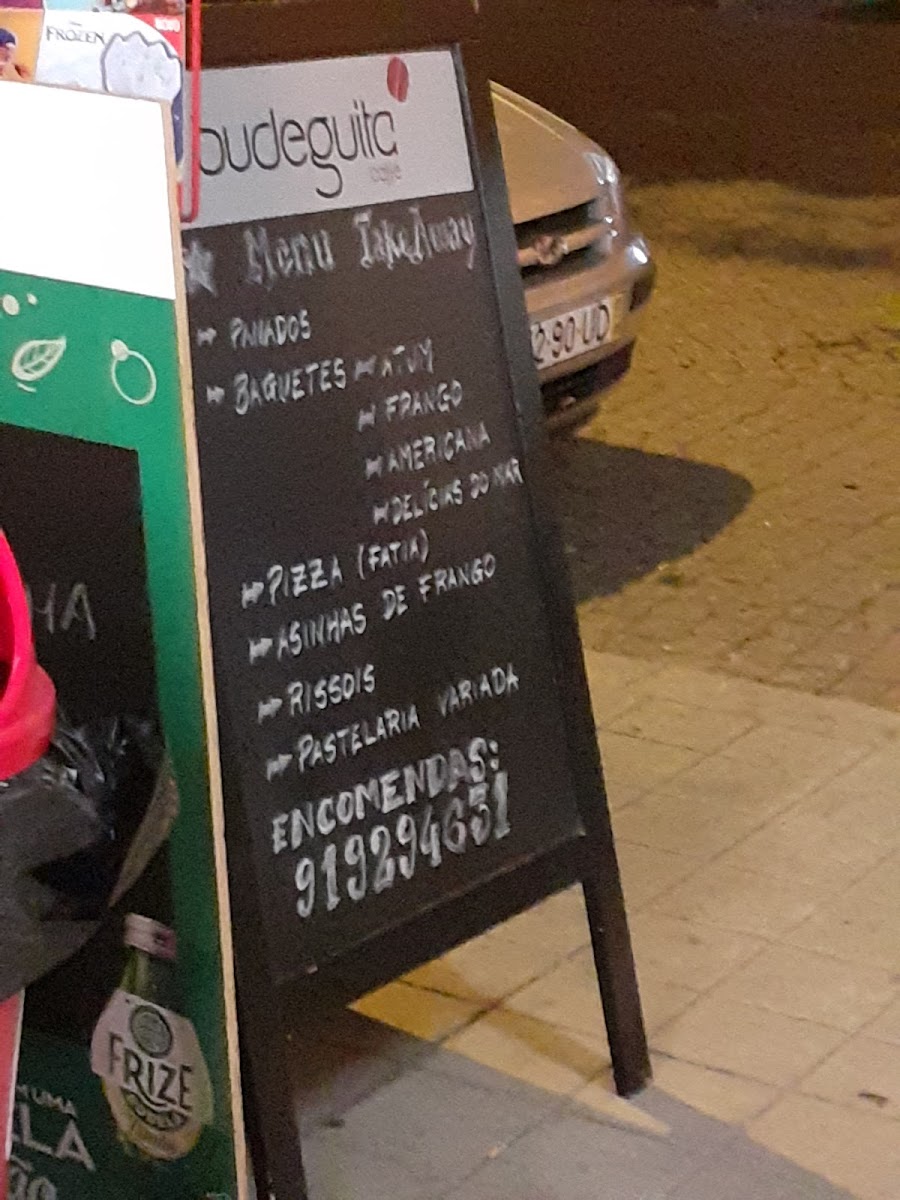 FROZEN
NOVO
budeguita
café
Menu TakeAway
PANADOS
BAGUETES ATUM
FRANGO
AMERICANA
DELÍCIAS DO MAR
PIZZA (FATIA)
ASINHAS DE FRANGO
RISSOIS
PASTELARIA VARIADA
ENCOMENDAS:
919294651
2-90-UD
HA
FRIZE
UMA
ELA
ão